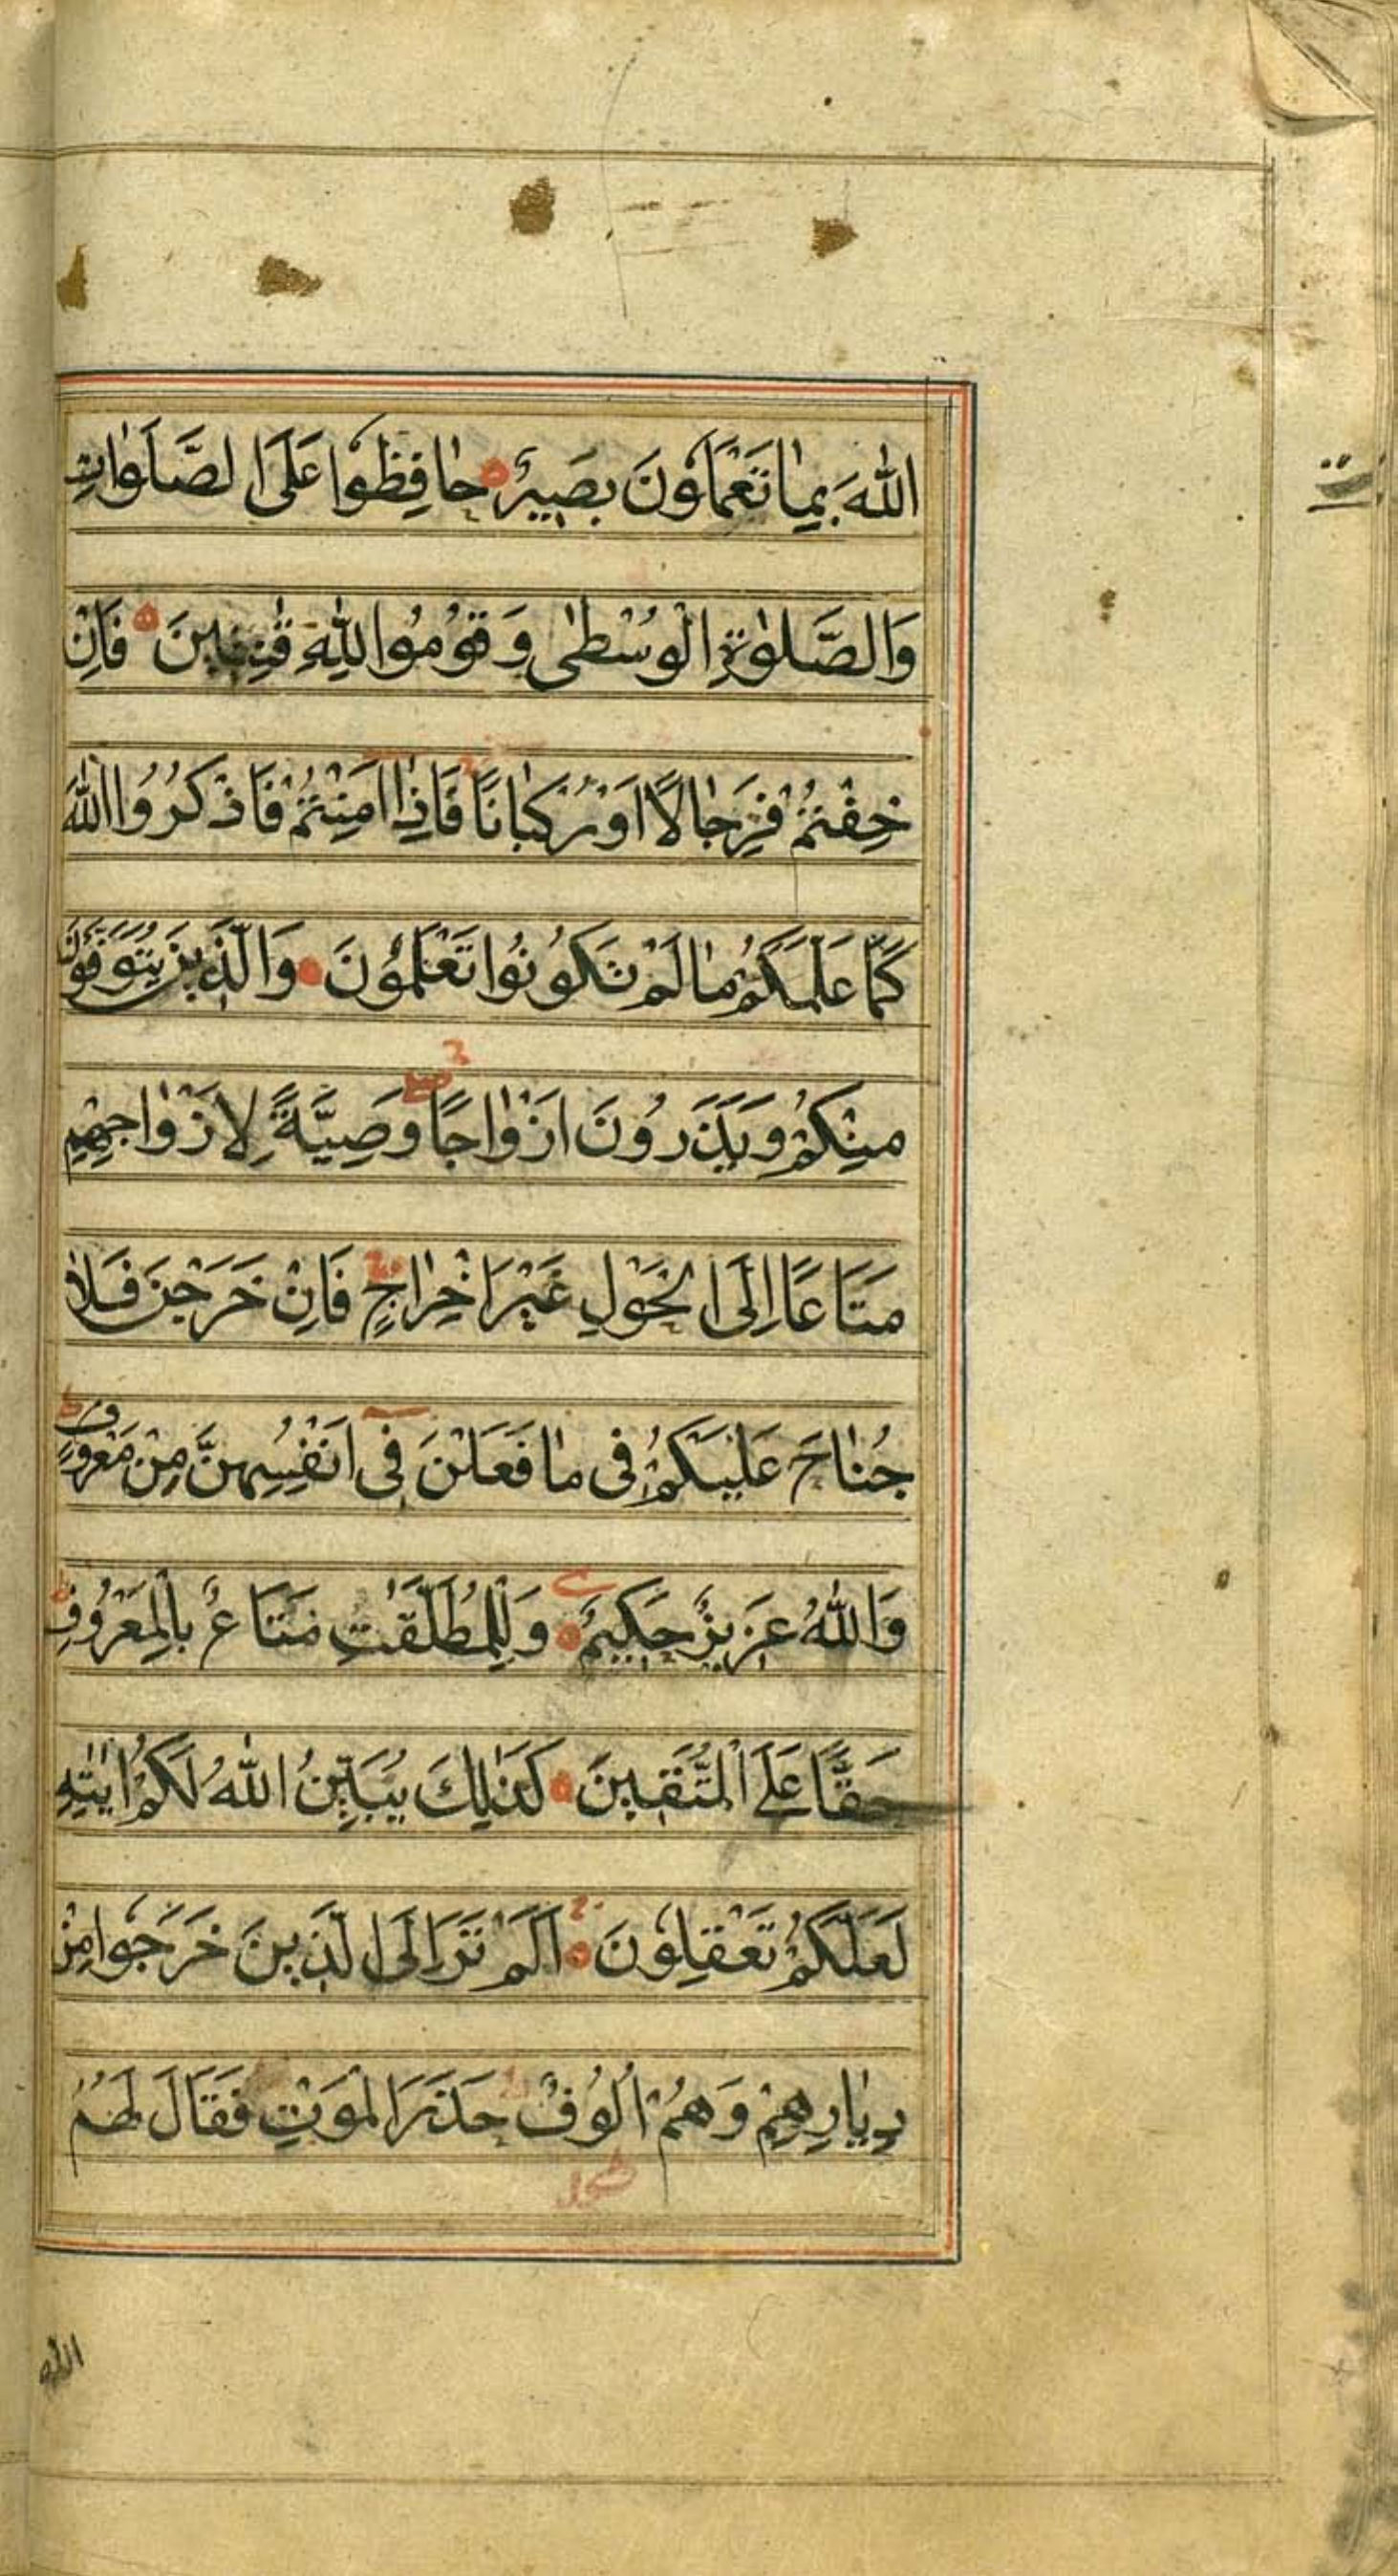 اللّٰهَ بِمٰا تَعْمَلُونَ بَصِيرٌ حٰافِظُوا عَلَى الصَّلَوٰاتِ
وَالصَّلٰوةِ الْوُسْطٰى وَقُومُوا لِلّٰهِ قٰنِتِينَ فَاِنْ
خِفْتُمْ فَرِجٰالًا اَوْ رُكْبٰانًا فَاِذٰا اَمِنْتُمْ فَاذْكُرُوا اللّٰهَ
كَمٰا عَلَّمَكُمْ مٰا لَمْ تَكُونُوا تَعْلَمُونَ وَالَّذِينَ يُتَوَفَّوْنَ
مِنْكُمْ وَيَذَرُونَ اَزْوٰاجًا وَصِيَّةً لِاَزْوٰاجِهِمْ
مَتَاعًا اِلَى الْحَوْلِ غَيْرَ اِخْرٰاجٍ فَاِنْ خَرَجْنَ فَلٰا
جُنٰاحَ عَلَيْكُمْ فِى مٰا فَعَلْنَ فِى اَنْفُسِهِنَّ مِنْ مَعْرُوفٍ
وَاللّٰهُ عَزِيزٌ حَكِيمٌ وَلِلْمُطَلَّقٰتِ مَتَاعٌ بِالْمَعْرُوفِ
حَقًّا عَلَى الْمُتَّقِينَ كَذٰلِكَ يُبَيِّنُ اللّٰهُ لَكُمْ اٰيٰتِهِ
لَعَلَّكُمْ تَعْقِلُونَ اَلَمْ تَرَ اِلَى الَّذِينَ خَرَجُوا مِنْ
دِيٰارِهِمْ وَهُمْ اُلُوفٌ حَذَرَ الْمَوْتِ فَقَالَ لَهُمُ
اللّٰه